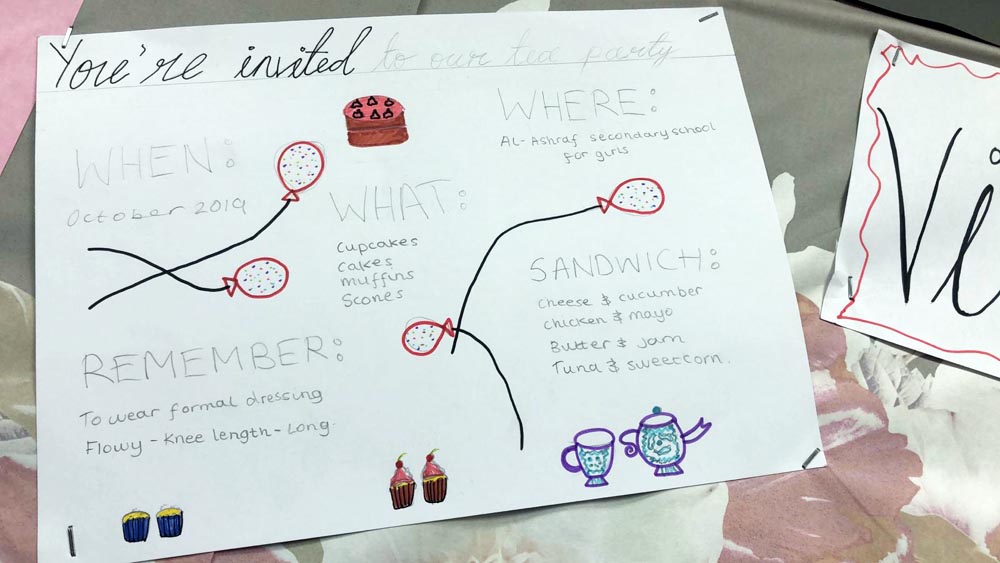 You're invited to our tea party
WHEN:
October 2019
WHAT:
Cupcakes
Cakes
muffins
Scones
WHERE:
AL-Ashraf secondary school
for girls
SANDWICH:
Cheese & cucumber
Chicken & mayo
Butter & Jam
Tuna & sweetcorn.
REMEMBER:
To wear formal dressing
Flowy - Knee length - Long.